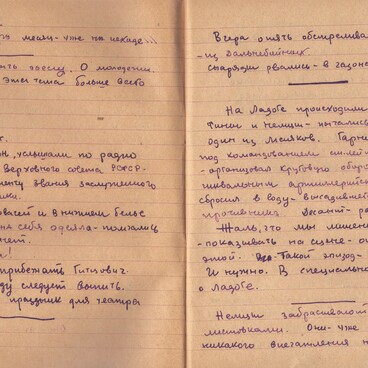 месяц - уже не исходе...
пьесу. О молодости.
Эта тема больше всего
услышали по радио
Верховного совета РСФСР.
звания заслуженного
и в нижнем белье
на себя одеяла -
прибежать Титович.
следует выпить.
праздник для театра
Вчера опять обстреливал
- из дальнобойных
снаряды рвались - в газон
На Ладоге происходили
Финны и немцы - пытались
один из маяков.
под командованием
- организовал круговую оборо
артиллерий
сбросил в воду - высадившей
противника. Десант -
Жаль, что мы лишены
- показывать на сцене -
этой. Такой эпизод -
И нужно. В специально
о Ладоге.
Немцы забрасывают
листовками. Они - уже
никакого впечатления н